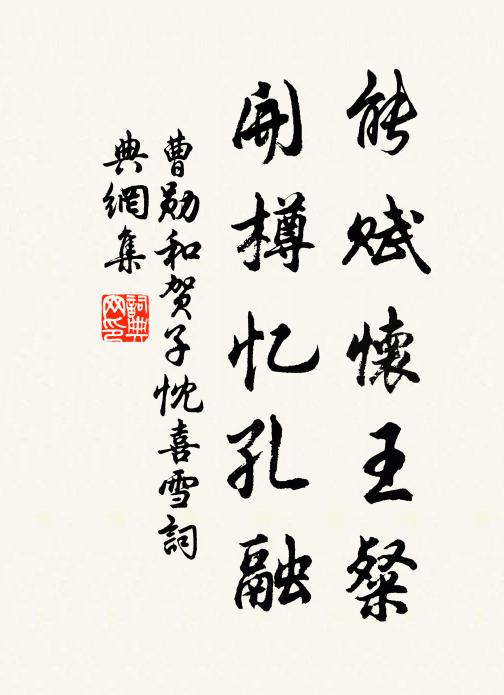 能赋懷王粲
開樽忆孔融
曹勋和贺子忱喜雪詞
典網集
詞典网印